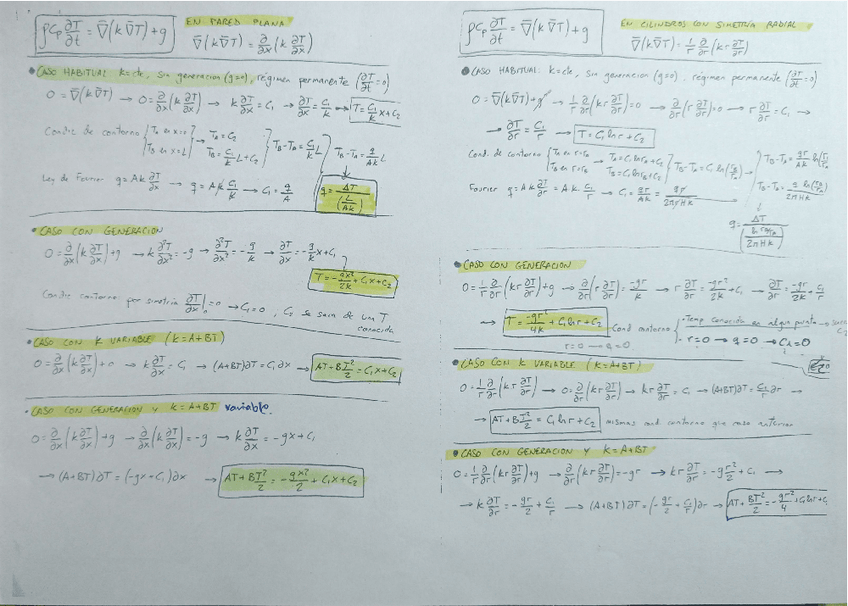 ρCp ∂T/∂t = ∇(k∇T) + g
EN PARED PLANA
∇(k∇T) = ∂/∂x (k ∂T/∂x)
• CASO HABITUAL k=cte, sin generacion (g=0), régimen permanente (∂T/∂t=0)
0 = ∇(k∇T) → 0 = ∂/∂x (k ∂T/∂x) → k ∂T/∂x = C₁ → ∂T/∂x = C₁/k → T = C₁/k x + C₂
Condic de contorno { TA en x=0 → TA = C₂
TB en x=L TB = C₁/k L + C₂ } TB - TA = C₁/k L } TB - TA = q/Ak L
Ley de Fourier q = Ak ∂T/∂x → q = Ak C₁/k → C₁ = q/A
q = ΔT/(L/Ak)
• CASO CON GENERACION
0 = ∂/∂x (k ∂T/∂x) + g → k ∂²T/∂x² = -g → ∂²T/∂x² = -g/k → ∂T/∂x = -g/k x + C₁
T = -gx²/2k + C₁x + C₂
Condic contorno: por simetria ∂T/∂x|₀ = 0 → C₁=0, C₂ se saca de un T
conocida
• CASO CON K VARIABLE (k=A+BT)
0 = ∂/∂x (k ∂T/∂x) + 0 → k ∂T/∂x = C₁ → (A+BT)∂T = C₁∂x → AT + BT²/2 = C₁x + C₂
• CASO CON GENERACION Y k=A+BT variable.
0 = ∂/∂x (k ∂T/∂x) + g → ∂/∂x (k ∂T/∂x) = -g → k ∂T/∂x = -gx + C₁
→ (A+BT)∂T = (-gx + C₁)∂x → AT + BT²/2 = -gx²/2 + C₁x + C₂
ρCp ∂T/∂t = ∇(k∇T) + g
EN CILINDROS CON SIMETRÍA RADIAL
∇(k∇T) = 1/r ∂/∂r (kr ∂T/∂r)
• CASO HABITUAL: k=cte, sin generacion (g=0), régimen permanente (∂T/∂t=0)
0 = ∇(k∇T) + g → 1/r ∂/∂r (kr ∂T/∂r) = 0 → ∂/∂r (r ∂T/∂r) = 0 → r ∂T/∂r = C₁ →
→ ∂T/∂r = C₁/r → T = C₁ ln r + C₂
Cond. de contorno { TA en r=rA → TA = C₁ ln rA + C₂
TB en r=rB TB = C₁ ln rB + C₂ } TB - TA = C₁ ln (rB/rA) } TB - TA = qr/Ak ln(rB/rA)
Fourier q = Ak ∂T/∂r = A·k·C₁/r → C₁ = qr/Ak = qr/2πrHk
TB - TA = q/2πHk ln(rB/rA)
q = ΔT/(ln rB/rA / 2πHk)
• CASO CON GENERACION
0 = 1/r ∂/∂r (kr ∂T/∂r) + g → ∂/∂r (r ∂T/∂r) = -gr/k → r ∂T/∂r = -gr²/2k + C₁ → ∂T/∂r = -gr/2k + C₁/r
→ T = -gr²/4k + C₁ ln r + C₂ Cond contorno { · Temp conocida en algun punto →
· r=0 → q=0 → C₁=0
r=0 → q=0
• CASO CON K VARIABLE (k=A+BT)
0 = 1/r ∂/∂r (kr ∂T/∂r) → 0 = ∂/∂r (kr ∂T/∂r) → kr ∂T/∂r = C₁ → (A+BT)∂T = C₁/r ∂r →
→ AT + BT²/2 = C₁ ln r + C₂ mismas cond contorno que caso anterior
• CASO CON GENERACION Y k=A+BT
0 = 1/r ∂/∂r (kr ∂T/∂r) + g → ∂/∂r (kr ∂T/∂r) = -gr → kr ∂T/∂r = -g r²/2 + C₁ →
→ k ∂T/∂r = -gr/2 + C₁/r → (A+BT)∂T = (-gr/2 + C₁/r)∂r → AT + BT²/2 = -gr²/4 + C₁ ln r + C₂